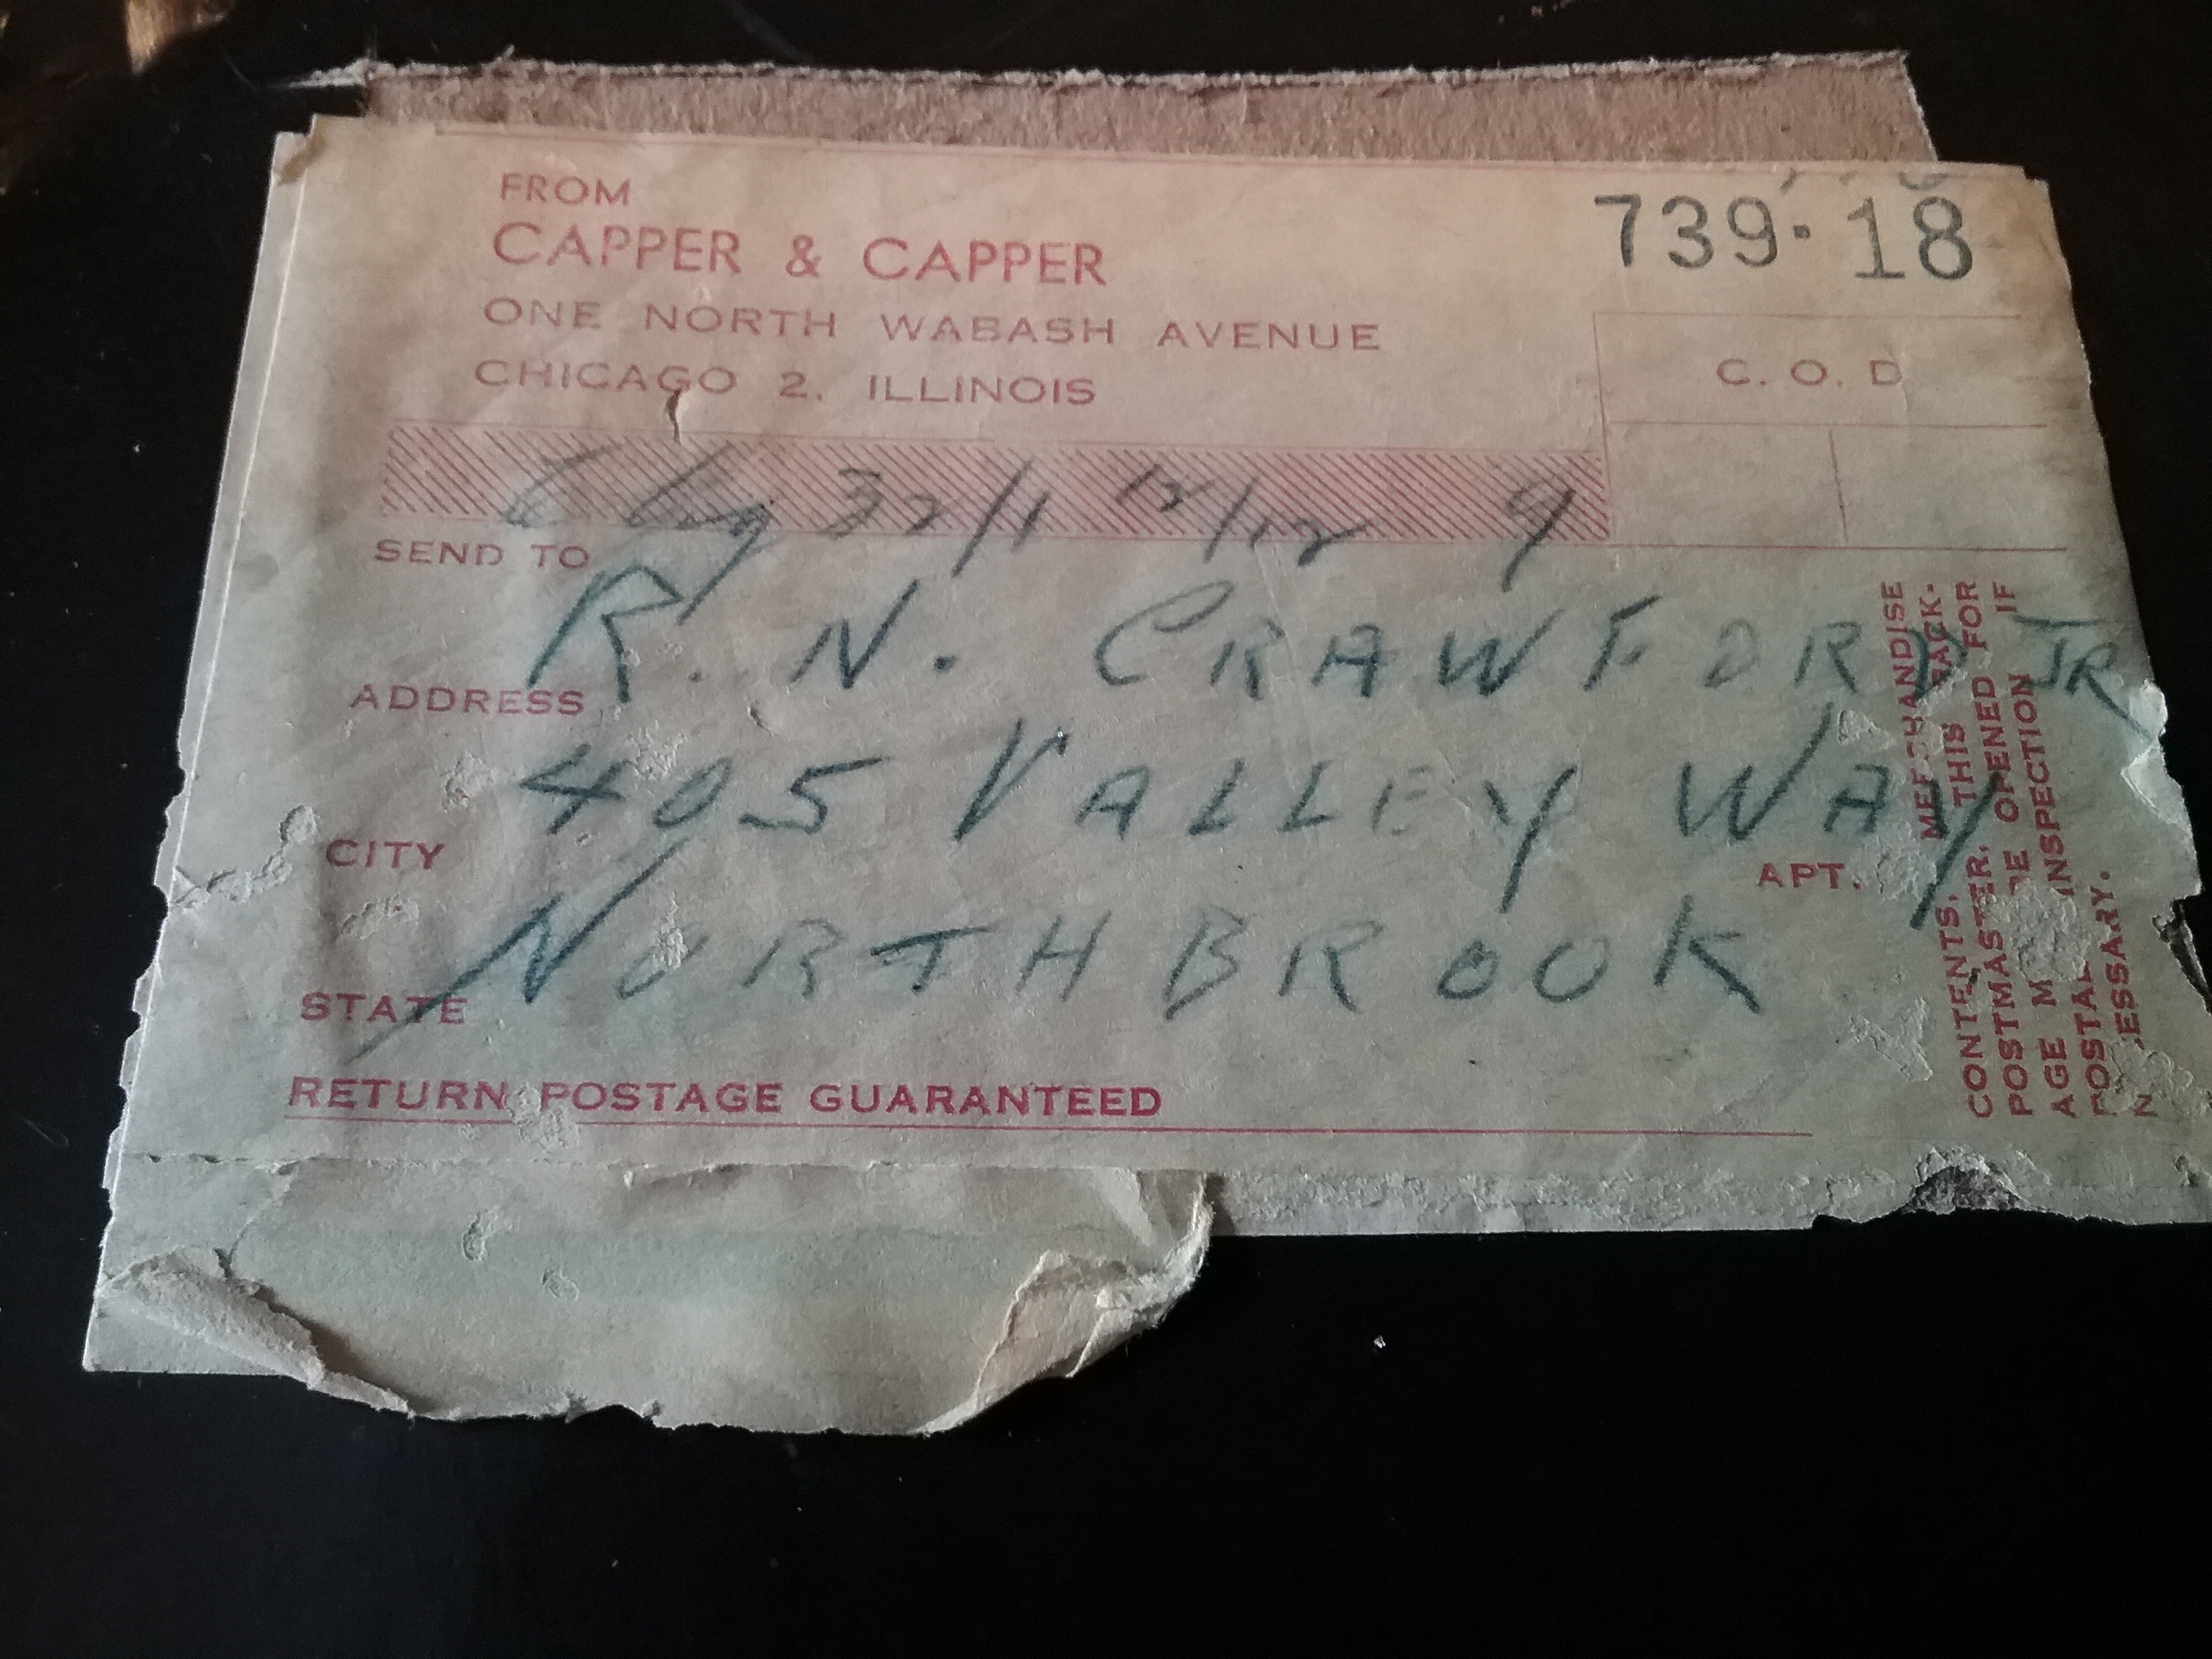 FROM
CAPPER & CAPPER
ONE NORTH WABASH AVENUE
CHICAGO 2, ILLINOIS
739·18
C. O. D
32/1 12/12 9
SEND TO
R. N. CRAWFORD JR
ADDRESS
405 VALLEY WAY
CITY
APT.
NORTHBROOK
STATE
RETURN POSTAGE GUARANTEED
CONTENTS, MERCHANDISE
POSTMASTER, THIS PACK-
AGE M BE OPENED FOR
POSTAL INSPECTION IF
N ESSARY.